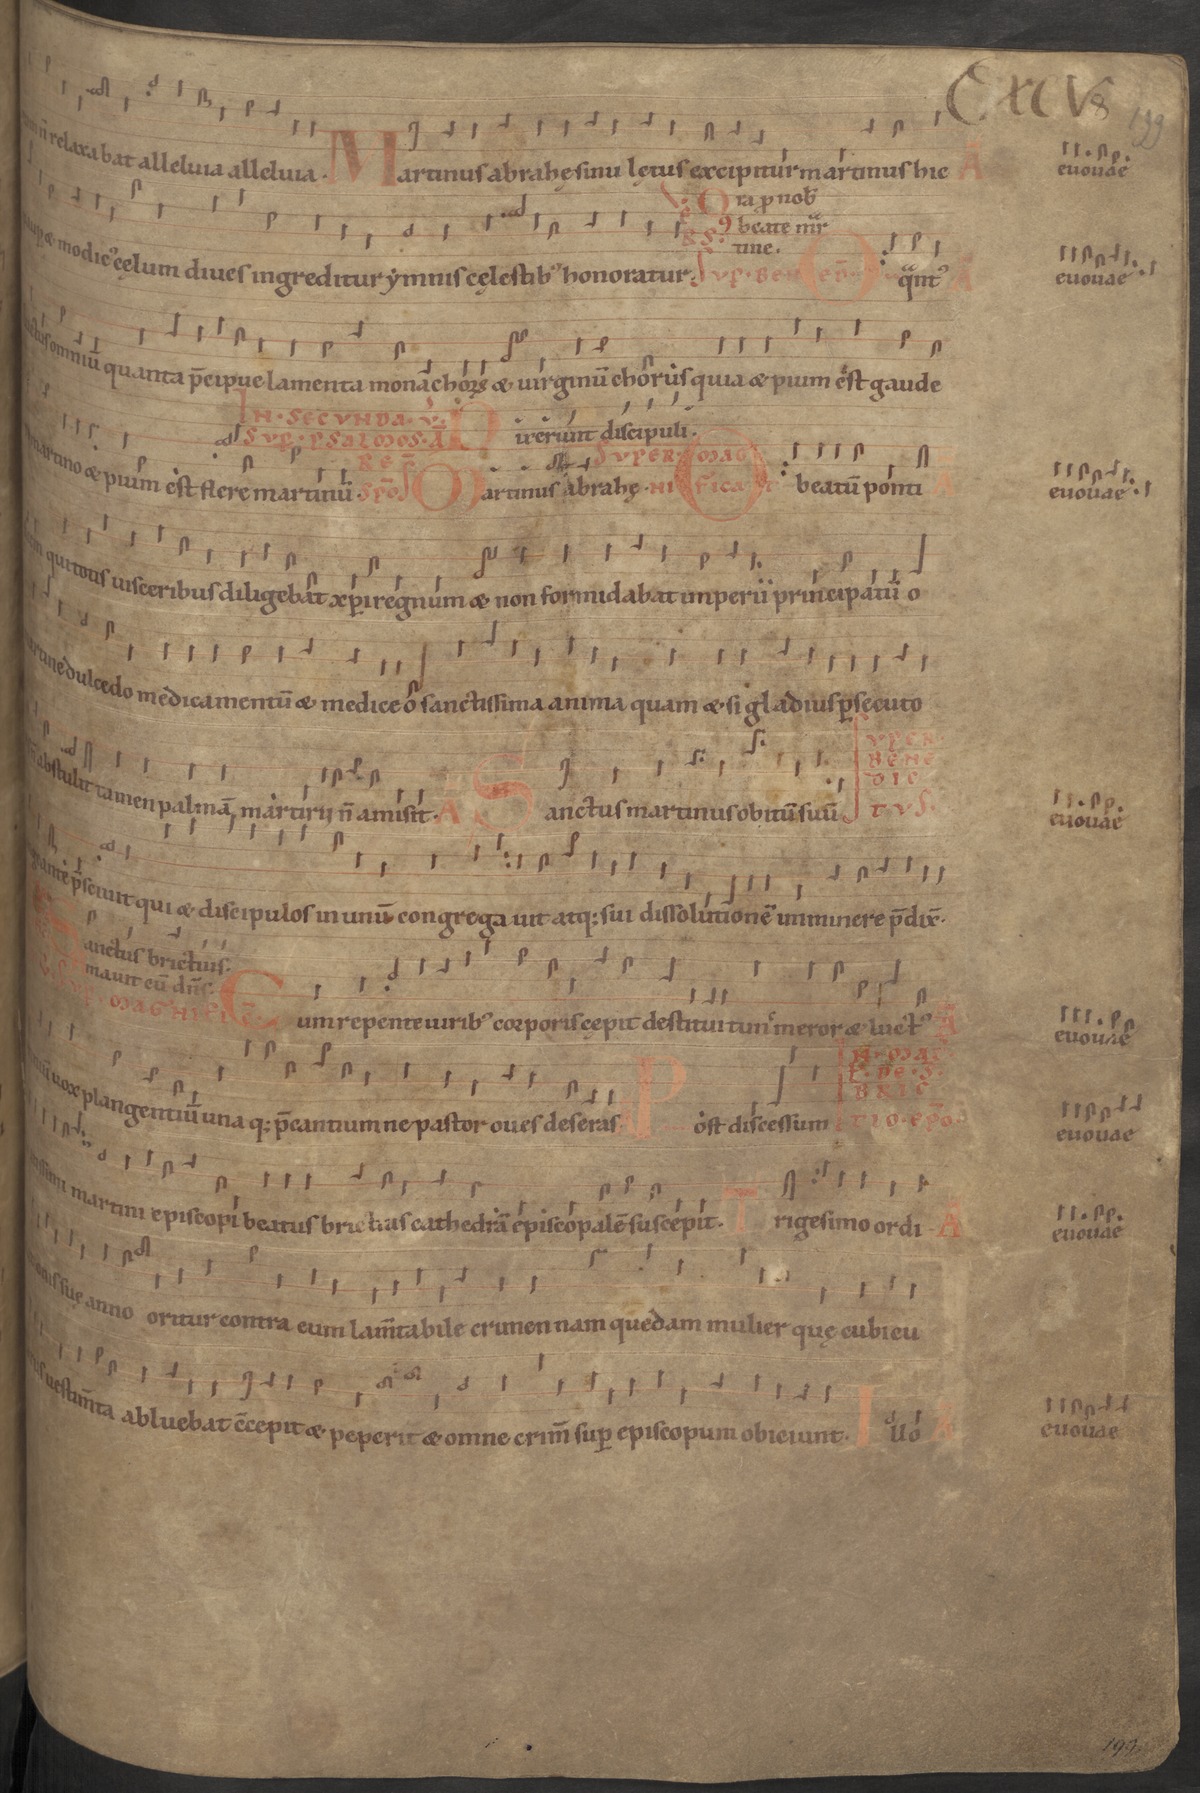 CXCVS 199
relaxabat alleluia alleluia. Martinus abrahę sinu lętus excipitur martinus hic A euouae
Ora p nob
beate mar
tine.
& modic9 cęlum diues ingreditur ẏmnis cęlestib9 honoratur. SUP. BEN O qnt9 A euouae
omniū quanta p̄cipue lamenta monachorę & uirginū chorus quia & pium est gaude
IN SECVNDA V. SUP. PSALMOS. A Direrunt discipuli.
martino & pium est flere martinū REC SPO Martinus abrahę. SUPER MAG NIFICAT O beatū ponti A euouae
qui totis uisceribus diligebat xp̄i regnum & non formidabat imperii principatū o
martine dulcedo medicamentū & medice o sanctissima anima quam & si gladius p̱secuto
abstulit tamen palmā martirii n̄ amisit. A Sanctus martinus obitū suū SUPER BENEDICTVS. euouae
p̄sciuit qui & discipulos in unū congregauit atq; sui dissolutionē imminere p̄dix̄.
Sanctus brictius.
mauit eū dn̄s.
SUP. MAGNIFI Cum repente uirib9 corporis cępit destitui tun̄c meror & luct9 A euouae
uox plangentiū una q; p̄cantium ne pastor oues deseras A Post discessum IN. MAG F. DE. S. BRIC TIO. EPO. euouae
martini episcopi beatus brictius cathedrā episcopalē suscepit. Trigesimo ordi A euouae
suę anno oritur contra eum lam̄tabile crimen nam quędam mulier quę cubicu
uestim̄ta abluebat c̄cepit & peperit & omne crim̄ sup̱ episcopum obiciunt. I llo A euouae
199.